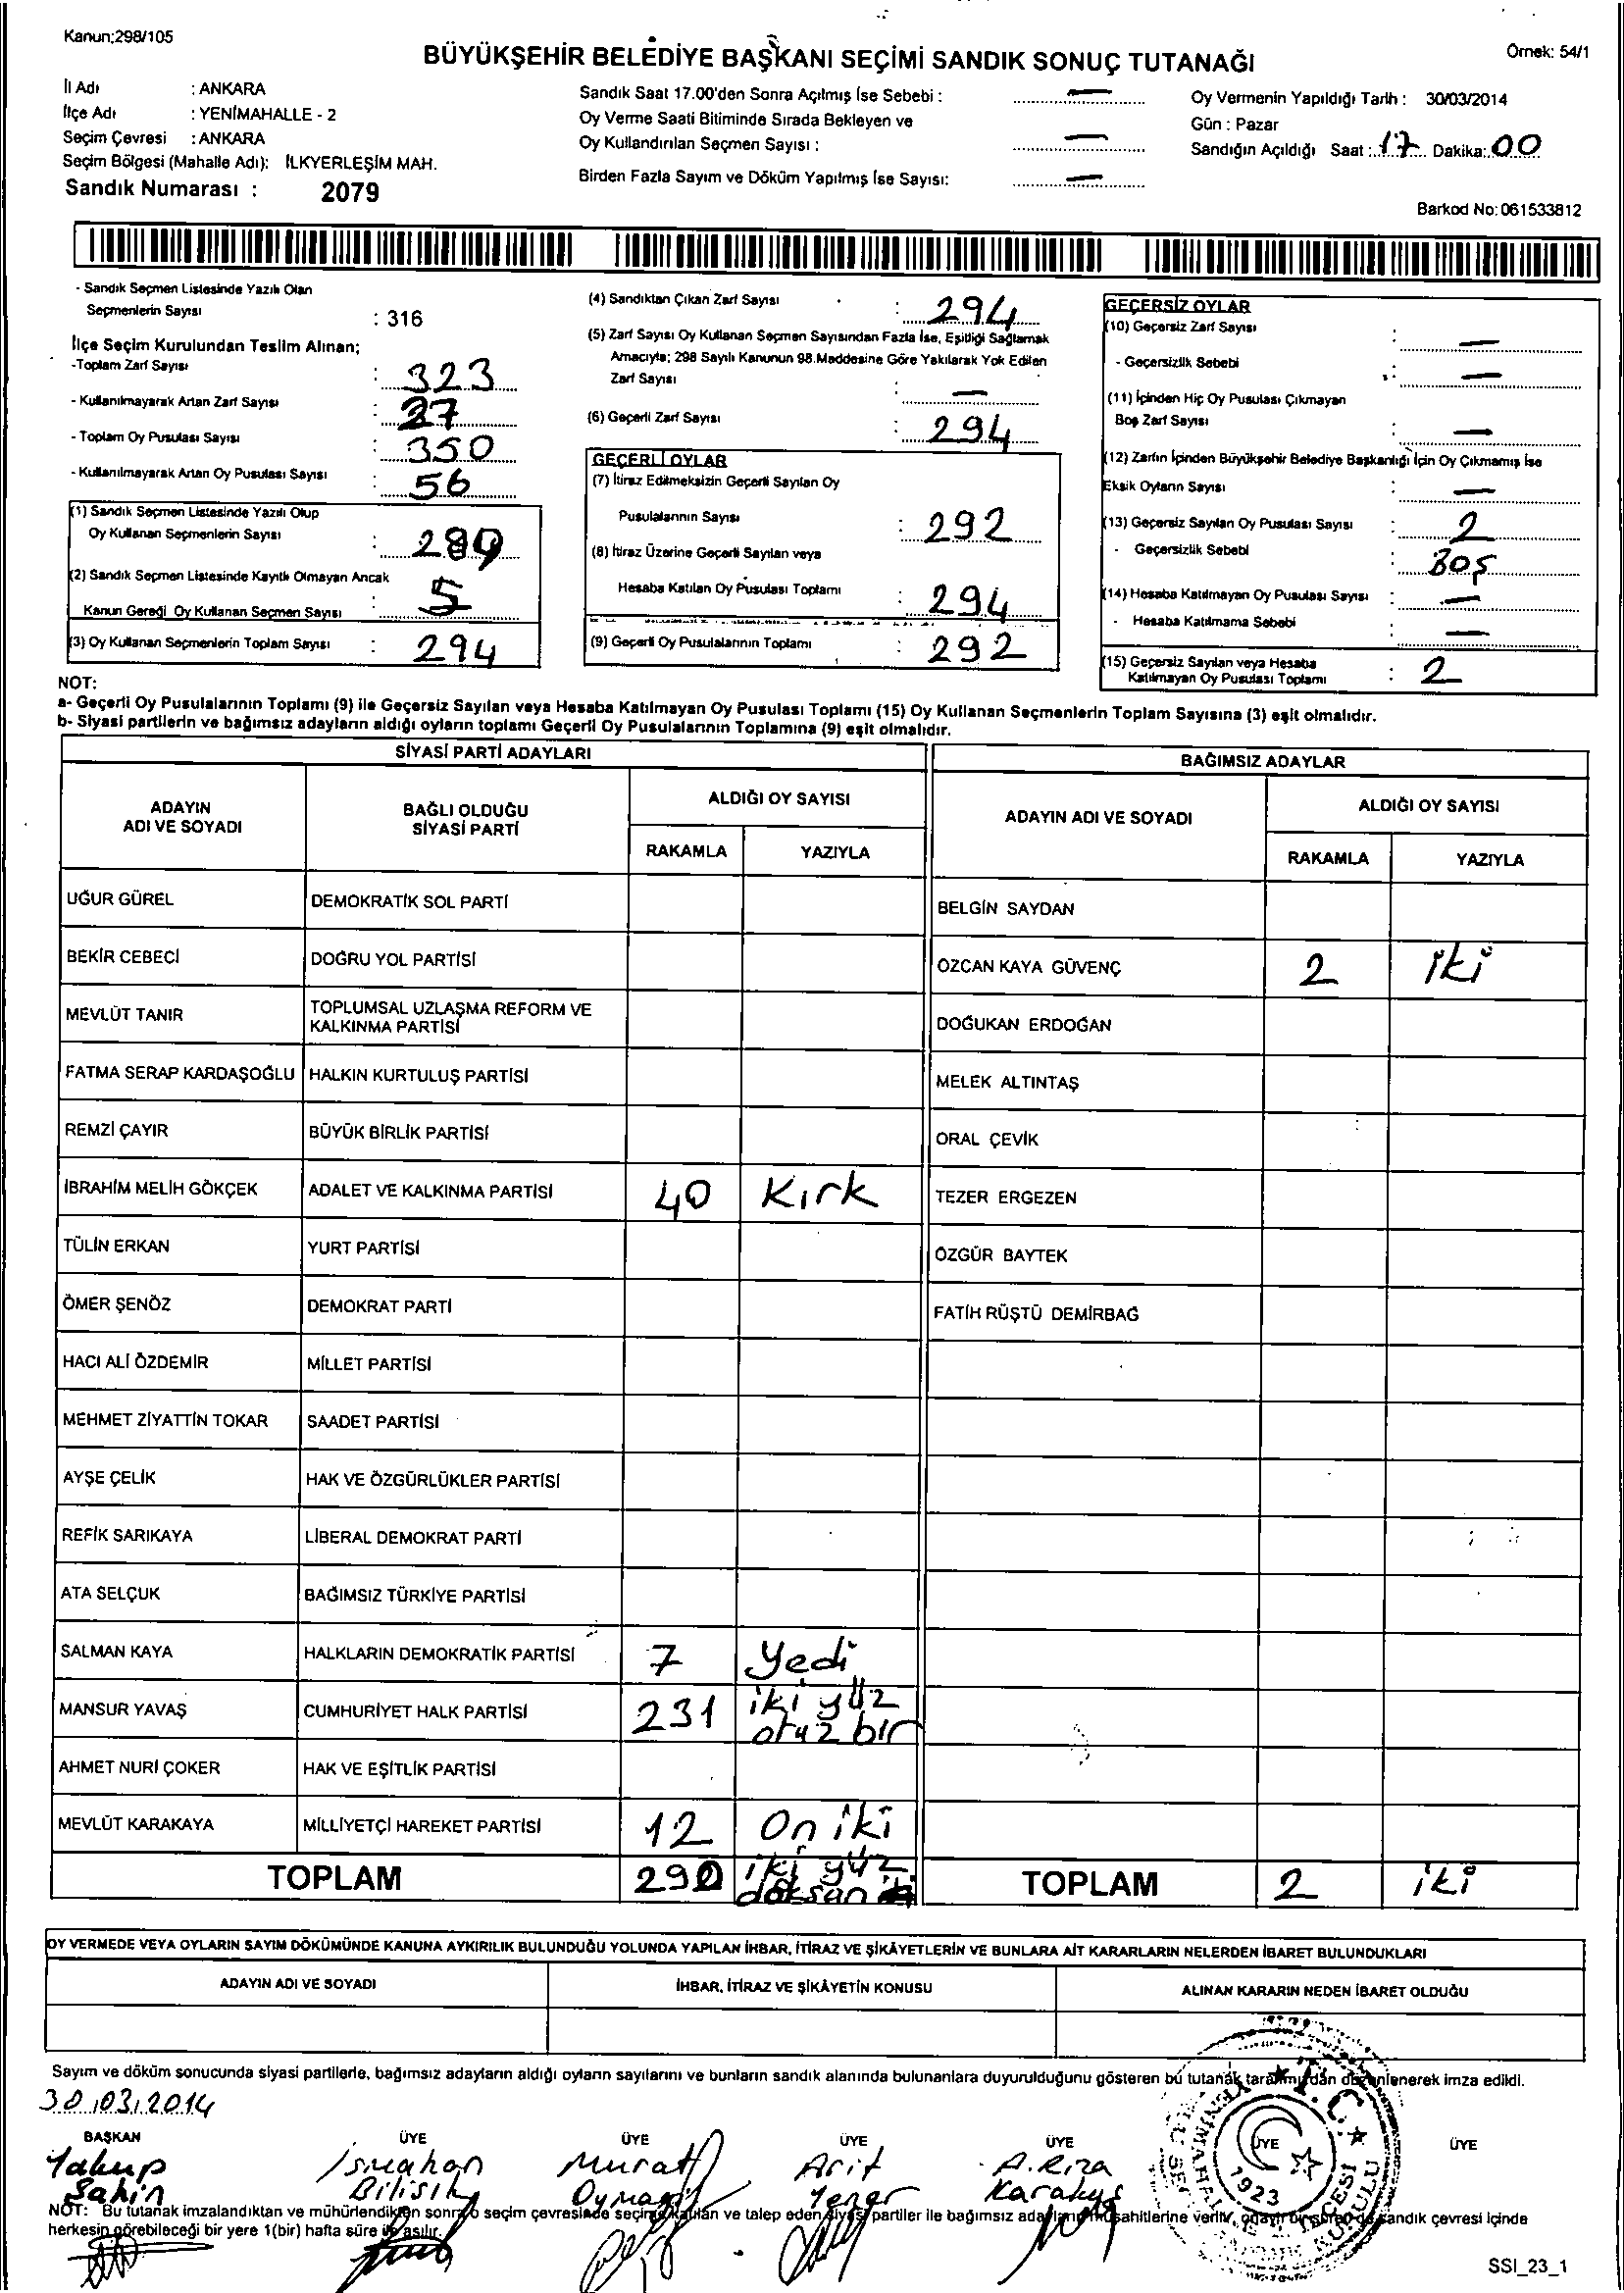 Kanun;298/105
BÜYÜKŞEHİR BELEDİYE BAŞKANI SEÇİMİ SANDIK SONUÇ TUTANAĞI
Örnek: 54/1
İl Adı : ANKARA
İlçe Adı : YENİMAHALLE - 2
Seçim Çevresi : ANKARA
Seçim Bölgesi (Mahalle Adı): İLKYERLEŞİM MAH.
Sandık Numarası : 2079
Sandık Saat 17.00'den Sonra Açılmış İse Sebebi : —
Oy Verme Saati Bitiminde Sırada Bekleyen ve
Oy Kullandırılan Seçmen Sayısı : —
Birden Fazla Sayım ve Döküm Yapılmış İse Sayısı: —
Oy Vermenin Yapıldığı Tarih : 30/03/2014
Gün : Pazar
Sandığın Açıldığı Saat : 17 Dakika: 00
Barkod No: 061533812
- Sandık Seçmen Listesinde Yazılı Olan
Seçmenlerin Sayısı : 316
İlçe Seçim Kurulundan Teslim Alınan;
-Toplam Zarf Sayısı : 323
- Kullanılmayarak Artan Zarf Sayısı : 27
- Toplam Oy Pusulası Sayısı : 350
- Kullanılmayarak Artan Oy Pusulası Sayısı : 56
(1) Sandık Seçmen Listesinde Yazılı Olup
Oy Kullanan Seçmenlerin Sayısı : 289
(2) Sandık Seçmen Listesinde Kayıtlı Olmayan Ancak
Kanun Gereği Oy Kullanan Seçmen Sayısı : 5
(3) Oy Kullanan Seçmenlerin Toplam Sayısı : 294
(4) Sandıktan Çıkan Zarf Sayısı : 294
(5) Zarf Sayısı Oy Kullanan Seçmen Sayısından Fazla İse, Eşitliği Sağlamak
Amacıyla; 298 Sayılı Kanunun 98.Maddesine Göre Yakılarak Yok Edilen
Zarf Sayısı : —
(6) Geçerli Zarf Sayısı : 294
GEÇERLİ OYLAR
(7) İtiraz Edilmeksizin Geçerli Sayılan Oy
Pusulalarının Sayısı : 292
(8) İtiraz Üzerine Geçerli Sayılan veya
Hesaba Katılan Oy Pusulası Toplamı : 294
(9) Geçerli Oy Pusulalarının Toplamı : 292
GEÇERSİZ OYLAR
(10) Geçersiz Zarf Sayısı : —
- Geçersizlik Sebebi : —
(11) İçinden Hiç Oy Pusulası Çıkmayan
Boş Zarf Sayısı : —
(12) Zarfın İçinden Büyükşehir Belediye Başkanlığı İçin Oy Çıkmamış İse
Eksik Oyların Sayısı : —
(13) Geçersiz Sayılan Oy Pusulası Sayısı : 2
- Geçersizlik Sebebi : BOŞ
(14) Hesaba Katılmayan Oy Pusulası Sayısı : —
- Hesaba Katılmama Sebebi : —
(15) Geçersiz Sayılan veya Hesaba
Katılmayan Oy Pusulası Toplamı : 2
NOT:
a- Geçerli Oy Pusulalarının Toplamı (9) ile Geçersiz Sayılan veya Hesaba Katılmayan Oy Pusulası Toplamı (15) Oy Kullanan Seçmenlerin Toplam Sayısına (3) eşit olmalıdır.
b- Siyasi partilerin ve bağımsız adayların aldığı oyların toplamı Geçerli Oy Pusulalarının Toplamına (9) eşit olmalıdır.
SİYASİ PARTİ ADAYLARI
ADAYIN ADI VE SOYADI BAĞLI OLDUĞU SİYASİ PARTİ ALDIĞI OY SAYISI
RAKAMLA YAZIYLA
UĞUR GÜREL DEMOKRATİK SOL PARTİ
BEKİR CEBECİ DOĞRU YOL PARTİSİ
MEVLÜT TANIR TOPLUMSAL UZLAŞMA REFORM VE KALKINMA PARTİSİ
FATMA SERAP KARDAŞOĞLU HALKIN KURTULUŞ PARTİSİ
REMZİ ÇAYIR BÜYÜK BİRLİK PARTİSİ
İBRAHİM MELİH GÖKÇEK ADALET VE KALKINMA PARTİSİ 40 Kırk
TÜLİN ERKAN YURT PARTİSİ
ÖMER ŞENÖZ DEMOKRAT PARTİ
HACI ALİ ÖZDEMİR MİLLET PARTİSİ
MEHMET ZİYATTİN TOKAR SAADET PARTİSİ
AYŞE ÇELİK HAK VE ÖZGÜRLÜKLER PARTİSİ
REFİK SARIKAYA LİBERAL DEMOKRAT PARTİ
ATA SELÇUK BAĞIMSIZ TÜRKİYE PARTİSİ
SALMAN KAYA HALKLARIN DEMOKRATİK PARTİSİ 7 Yedi
MANSUR YAVAŞ CUMHURİYET HALK PARTİSİ 231 iki yüz otuz bir
AHMET NURİ ÇOKER HAK VE EŞİTLİK PARTİSİ
MEVLÜT KARAKAYA MİLLİYETÇİ HAREKET PARTİSİ 12 On iki
TOPLAM 290 iki yüz doksan
BAĞIMSIZ ADAYLAR
ADAYIN ADI VE SOYADI ALDIĞI OY SAYISI
RAKAMLA YAZIYLA
BELGİN SAYDAN
ÖZCAN KAYA GÜVENÇ 2 iki
DOĞUKAN ERDOĞAN
MELEK ALTINTAŞ
ORAL ÇEVİK
TEZER ERGEZEN
ÖZGÜR BAYTEK
FATİH RÜŞTÜ DEMİRBAĞ
TOPLAM 2 iki
OY VERMEDE VEYA OYLARIN SAYIM DÖKÜMÜNDE KANUNA AYKIRILIK BULUNDUĞU YOLUNDA YAPILAN İHBAR, İTİRAZ VE ŞİKÂYETLERİN VE BUNLARA AİT KARARLARIN NELERDEN İBARET BULUNDUKLARI
ADAYIN ADI VE SOYADI İHBAR, İTİRAZ VE ŞİKÂYETİN KONUSU ALINAN KARARIN NEDEN İBARET OLDUĞU
Sayım ve döküm sonucunda siyasi partilerle, bağımsız adayların aldığı oyların sayılarını ve bunların sandık alanında bulunanlara duyurulduğunu gösteren bu tutanak tarafımızdan düzenlenerek imza edildi.
30/03/2014
BAŞKAN ÜYE ÜYE ÜYE ÜYE ÜYE ÜYE
Yakup Şahin
İsmahan
Murat
Arif Yener
A.Rıza Karakuş
T.C.
1923
NOT: Bu tutanak imzalandıktan ve mühürlendikten sonra o seçim çevresinde seçime katılan ve talep eden siyasi partiler ile bağımsız adayların müşahitlerine verilir, onaylı bir sureti de sandık çevresi içinde
herkesin görebileceği bir yere 1(bir) hafta süre ile asılır.
SSI_23_1